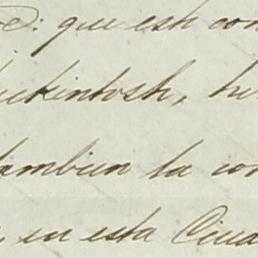 que esta con
ckintosh, hi
tambien la con
en esta Ciud